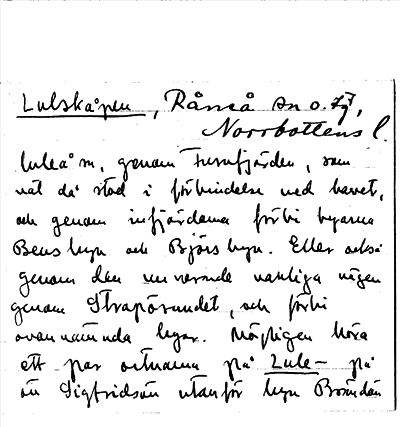 Lulskåpen, Råneå sn o. tg,
Norrbottens l.
luleå m, genom Furufjärden, som
väl då stod i förbindelse med havet,
och genom infjärdarna förbi byarna
Bensbyn och Björsbyn. Eller också
genom den nuvarande vanliga vägen
genom Strapösundet, och förbi
ovannämnda byar. Möjligen höra
ett par ortnamn på Lule- på
ön Sigfridsön utanför byn Brändön